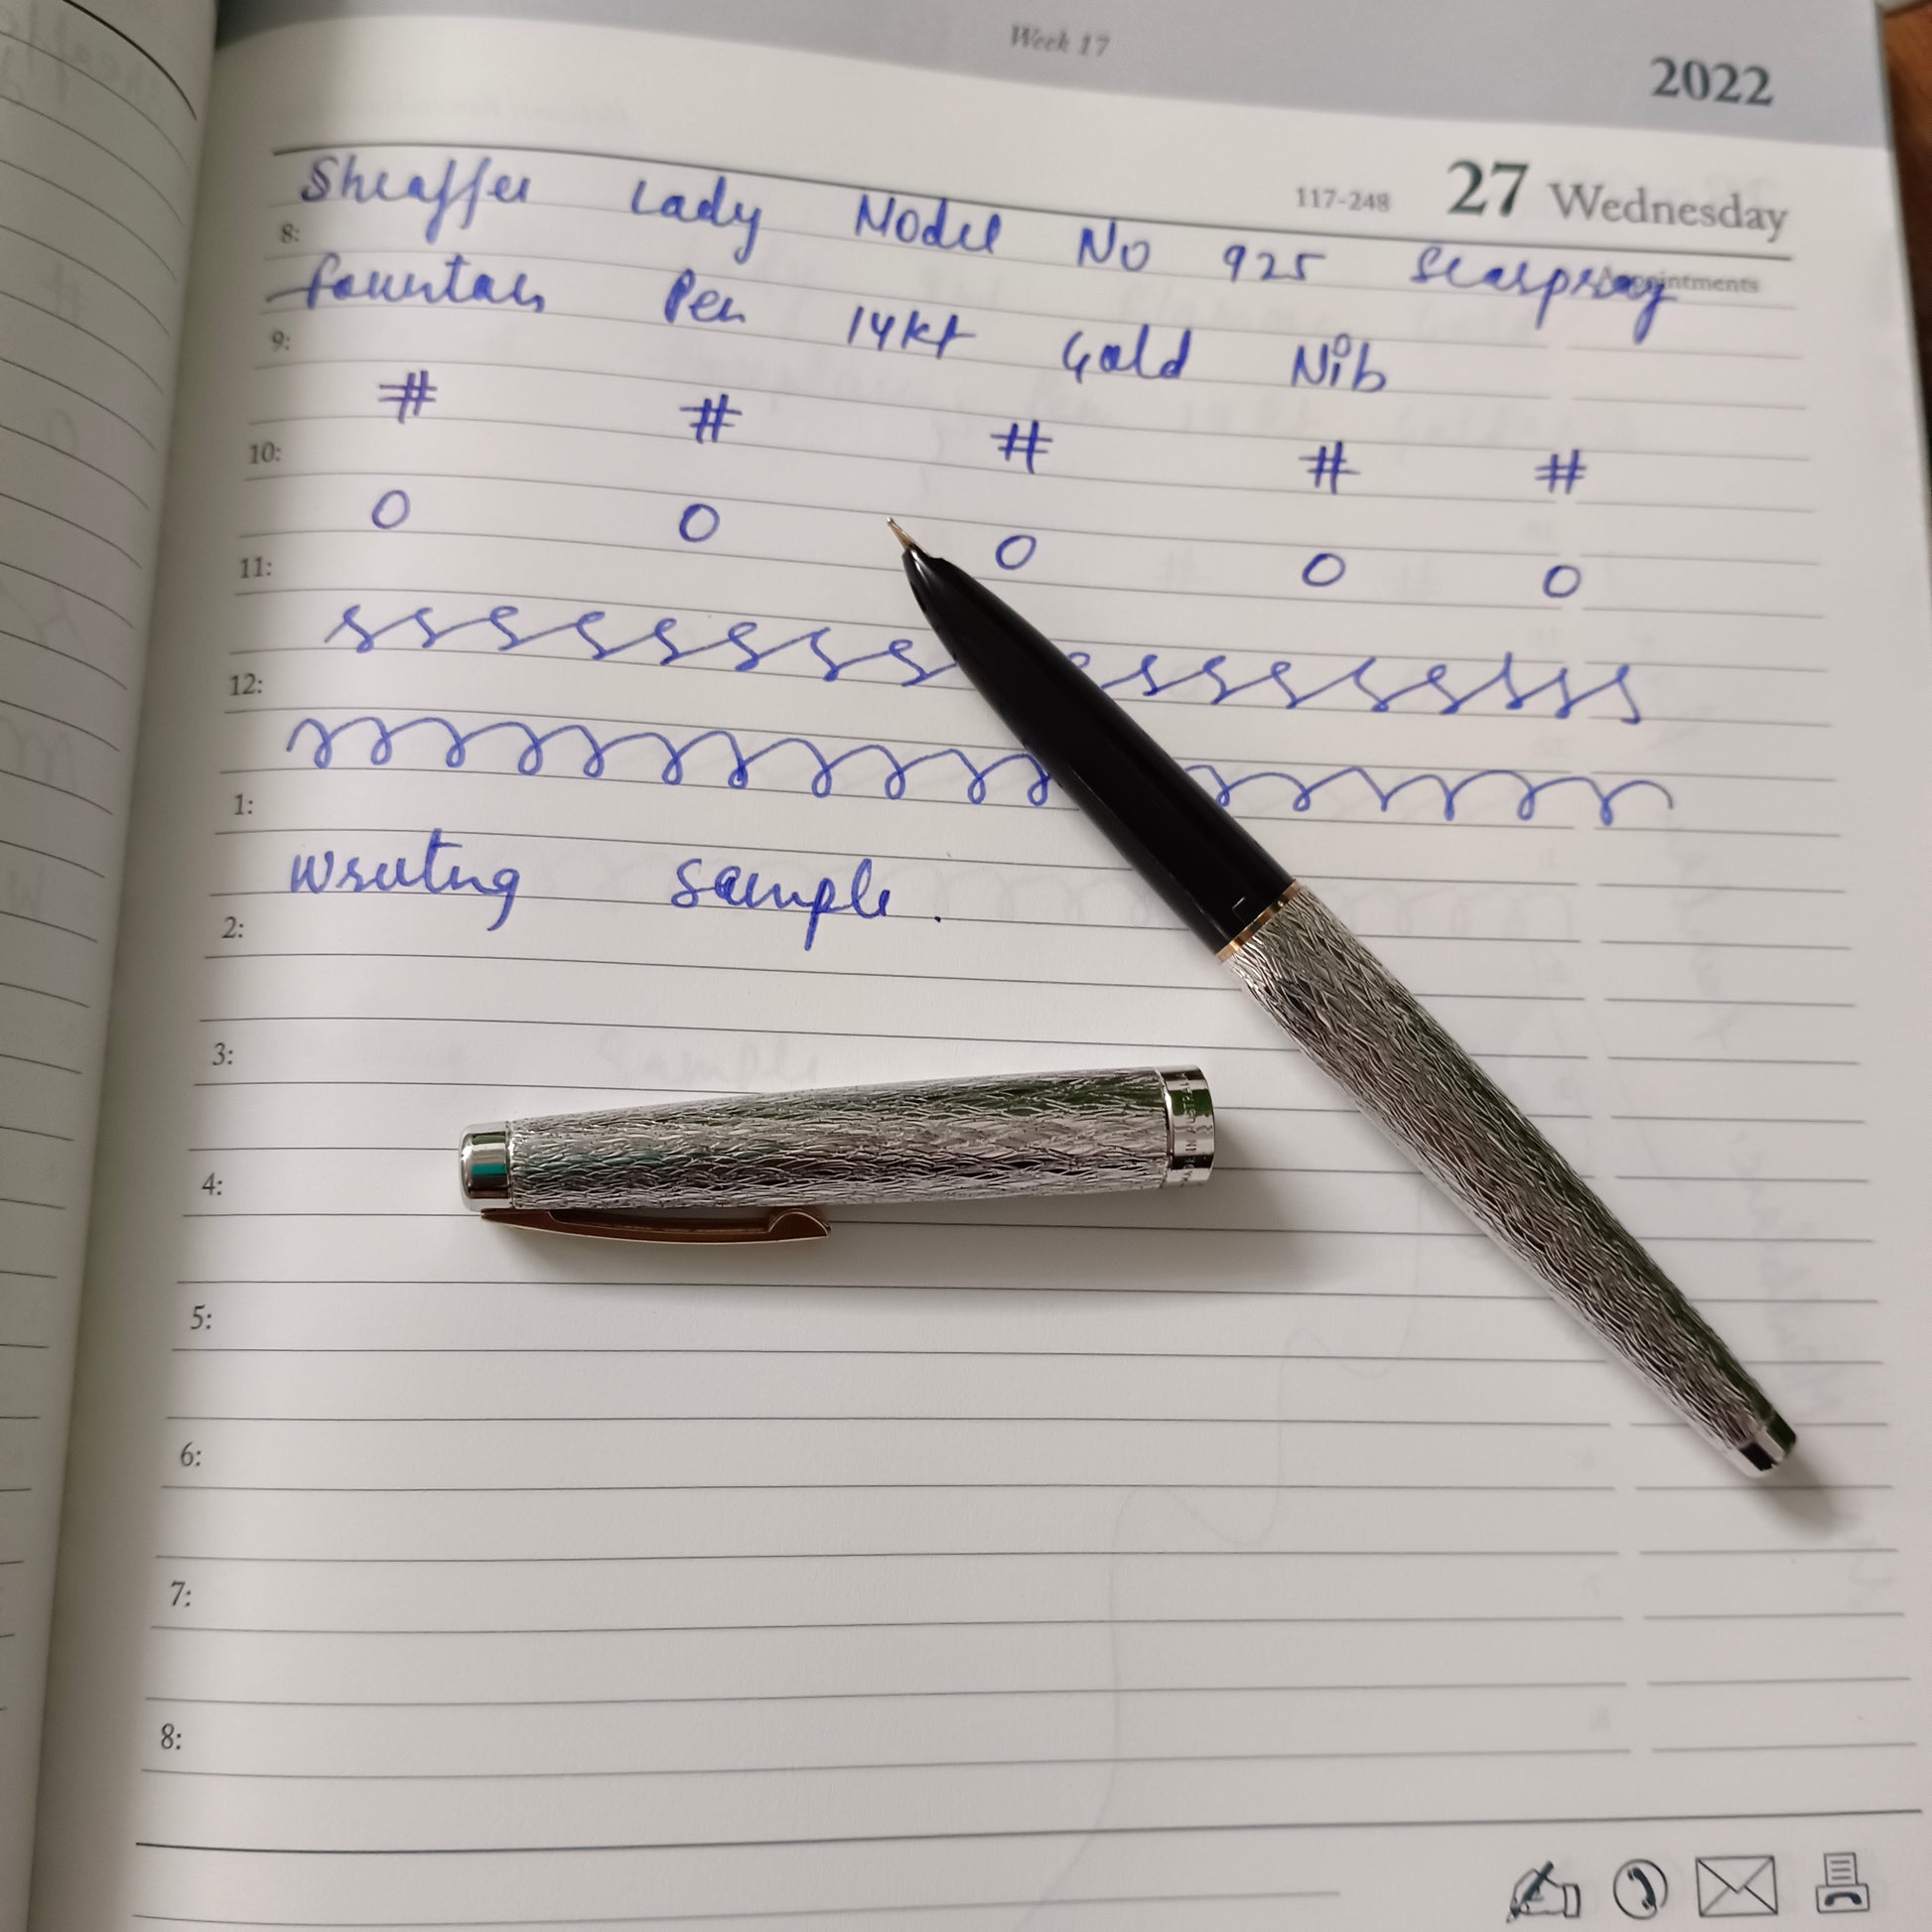 Week 17
2022
117-248 27 Wednesday
Sheaffer Lady Model No 925 Seaspray
Appointments
8:
Fountain Pen 14kt Gold Nib
9:
# # # # #
10:
O O O O O
11:
12:
1:
Writing Sample.
2:
3:
4:
5:
6:
7:
8: